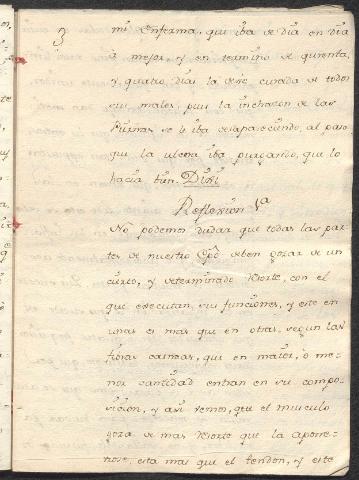 mi Enferma, que iba de dia en dia
â mejor, y en termino de quarenta,
y quatro dias la dexe curada de todos
sus males, pues la inchazon de las
Piernas se le iba desapareciendo, al paso
que la ulcera iba purgando, que lo
hacia bien. Dixi
Reflexion 1ª
No podemos dudar que todas las par-
tes de nuestro Cpõ deben gozar de un
cierto, y determinado Resorte, con el
que executan sus funciones, y este en
unas es mas que en otras, segun las
fibras carneas, que en maior, o me-
nor cantidad entran en su compo-
sicion, y asi vemos, que el musculo
goza de mas Resorte que la apone-
vrose, esta mas que el tendon, y este